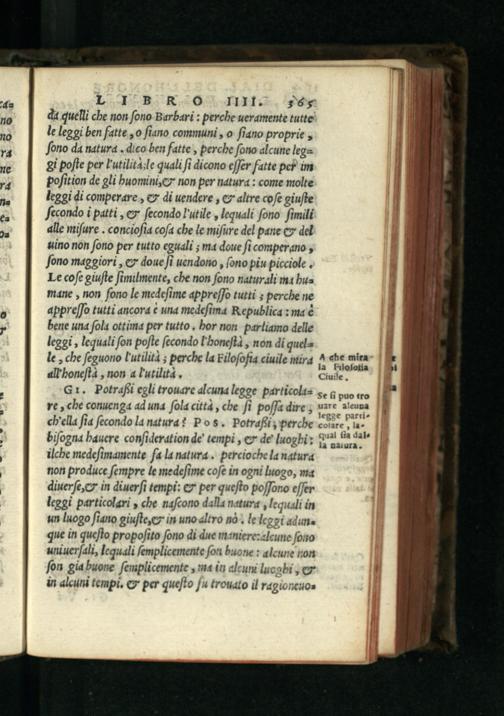 LIBRO IIII. 365
da quelli che non sono Barbari: perche ueramente tutte
le leggi ben fatte, o siano communi, o siano proprie,
sono da natura. dico ben fatte, perche sono alcune leg=
gi poste per l'utilità; le quali si dicono esser fatte per im
position de gli huomini, & non per natura: come molte
leggi di comperare, & di uendere, & altre cose giuste
secondo i patti, & secondo l'utile, lequali sono simili
alle misure. conciosia cosa che le misure del pane & del
uino non sono per tutto eguali; ma doue si comperano,
sono maggiori, & doue si uendono, sono piu picciole.
Le cose giuste similmente, che non sono naturali ma hu=
mane, non sono le medesime appresso tutti; perche ne
appresso tutti ancora è una medesima Republica: ma è
bene una sola ottima per tutto. hor non parliamo delle
leggi, lequali son poste secondo l'honestà, non di quel=
le, che seguono l'utilità; perche la Filosofia ciuile mira
all'honestà, non a l'utilità.
A che mira
la Filosofia
Ciuile.
GI. Potrassi egli trouare alcuna legge particola=
re, che conuenga ad una sola città, che si possa dire,
ch'ella sia secondo la natura? POS. Potrassi, perche
bisogna hauere consideration de' tempi, & de' luoghi:
ilche medesimamente fa la natura. percioche la natura
non produce sempre le medesime cose in ogni luogo, ma
diuerse, & in diuersi tempi: & per questo possono esser
leggi particolari, che nascono dalla natura, lequali in
un luogo siano giuste, & in uno altro nò. le leggi adun=
que in questo proposito sono di due maniere: alcune sono
uniuersali, lequali semplicemente son buone: alcune non
son gia buone semplicemente, ma in alcuni luoghi, &
in alcuni tempi. & per questo fu trouato il ragioneuo=
Se si puo tro
uare alcuna
legge parti=
colare, la=
qual sia dal=
la natura.